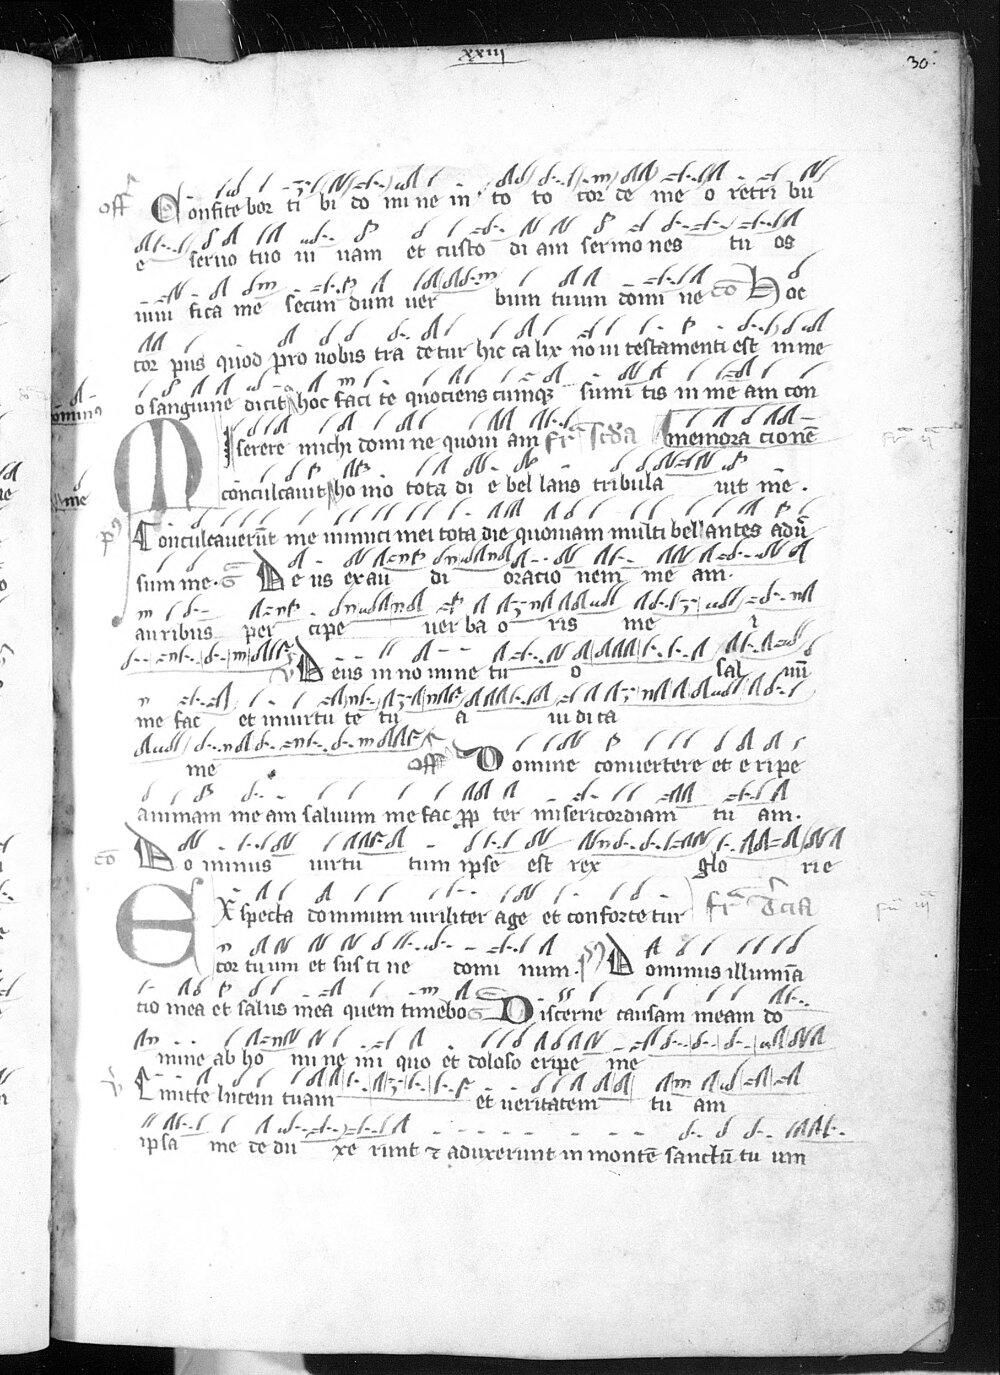 xxiii
30.
off Confitebor ti bi do mi ne in to to cor de me o retri bu
e seruo tuo ui uam et custo di am sermo nes tu os
uiui fica me secun dum uer bum tuum domi ne co Hoc
cor pus quod pro uobis tra de tur hic ca lix no ui testamenti est in me
o sanguine dicit hoc faci te quociens cumque sumi tis in me am con
memora cionem
Miserere michi domi ne quoni am fr scda
conculcauit ho mo tota di e bel lans tribula uit me.
ps Conculcauerunt me inimici mei tota die quoniam multi bellantes adu
sum me. G De us exau di oracio nem me am.
auribus per cipe uer ba o ris me i
V Deus in no mine tu o sal uum
me fac et inuirtu te tu a iu di ca
me off Domine conuertere et e ripe
animam me am saluum me fac pp ter misericordiam tu am.
co Do minus uirtu tum ipse est rex glo rie
Expecta dominum uiriliter age et conforte tur fr tcia
cor tu um et sus ti ne domi num. ps Dominus illumina
tio mea et salus mea quem timebo G Discerne causam meam do
mine ab ho mi ne ini quo et doloso eripe me
V Emitte lucem tuam et ueritatem tu am
ipsa me de du xe runt et aduxerunt in montem sanctum tu um